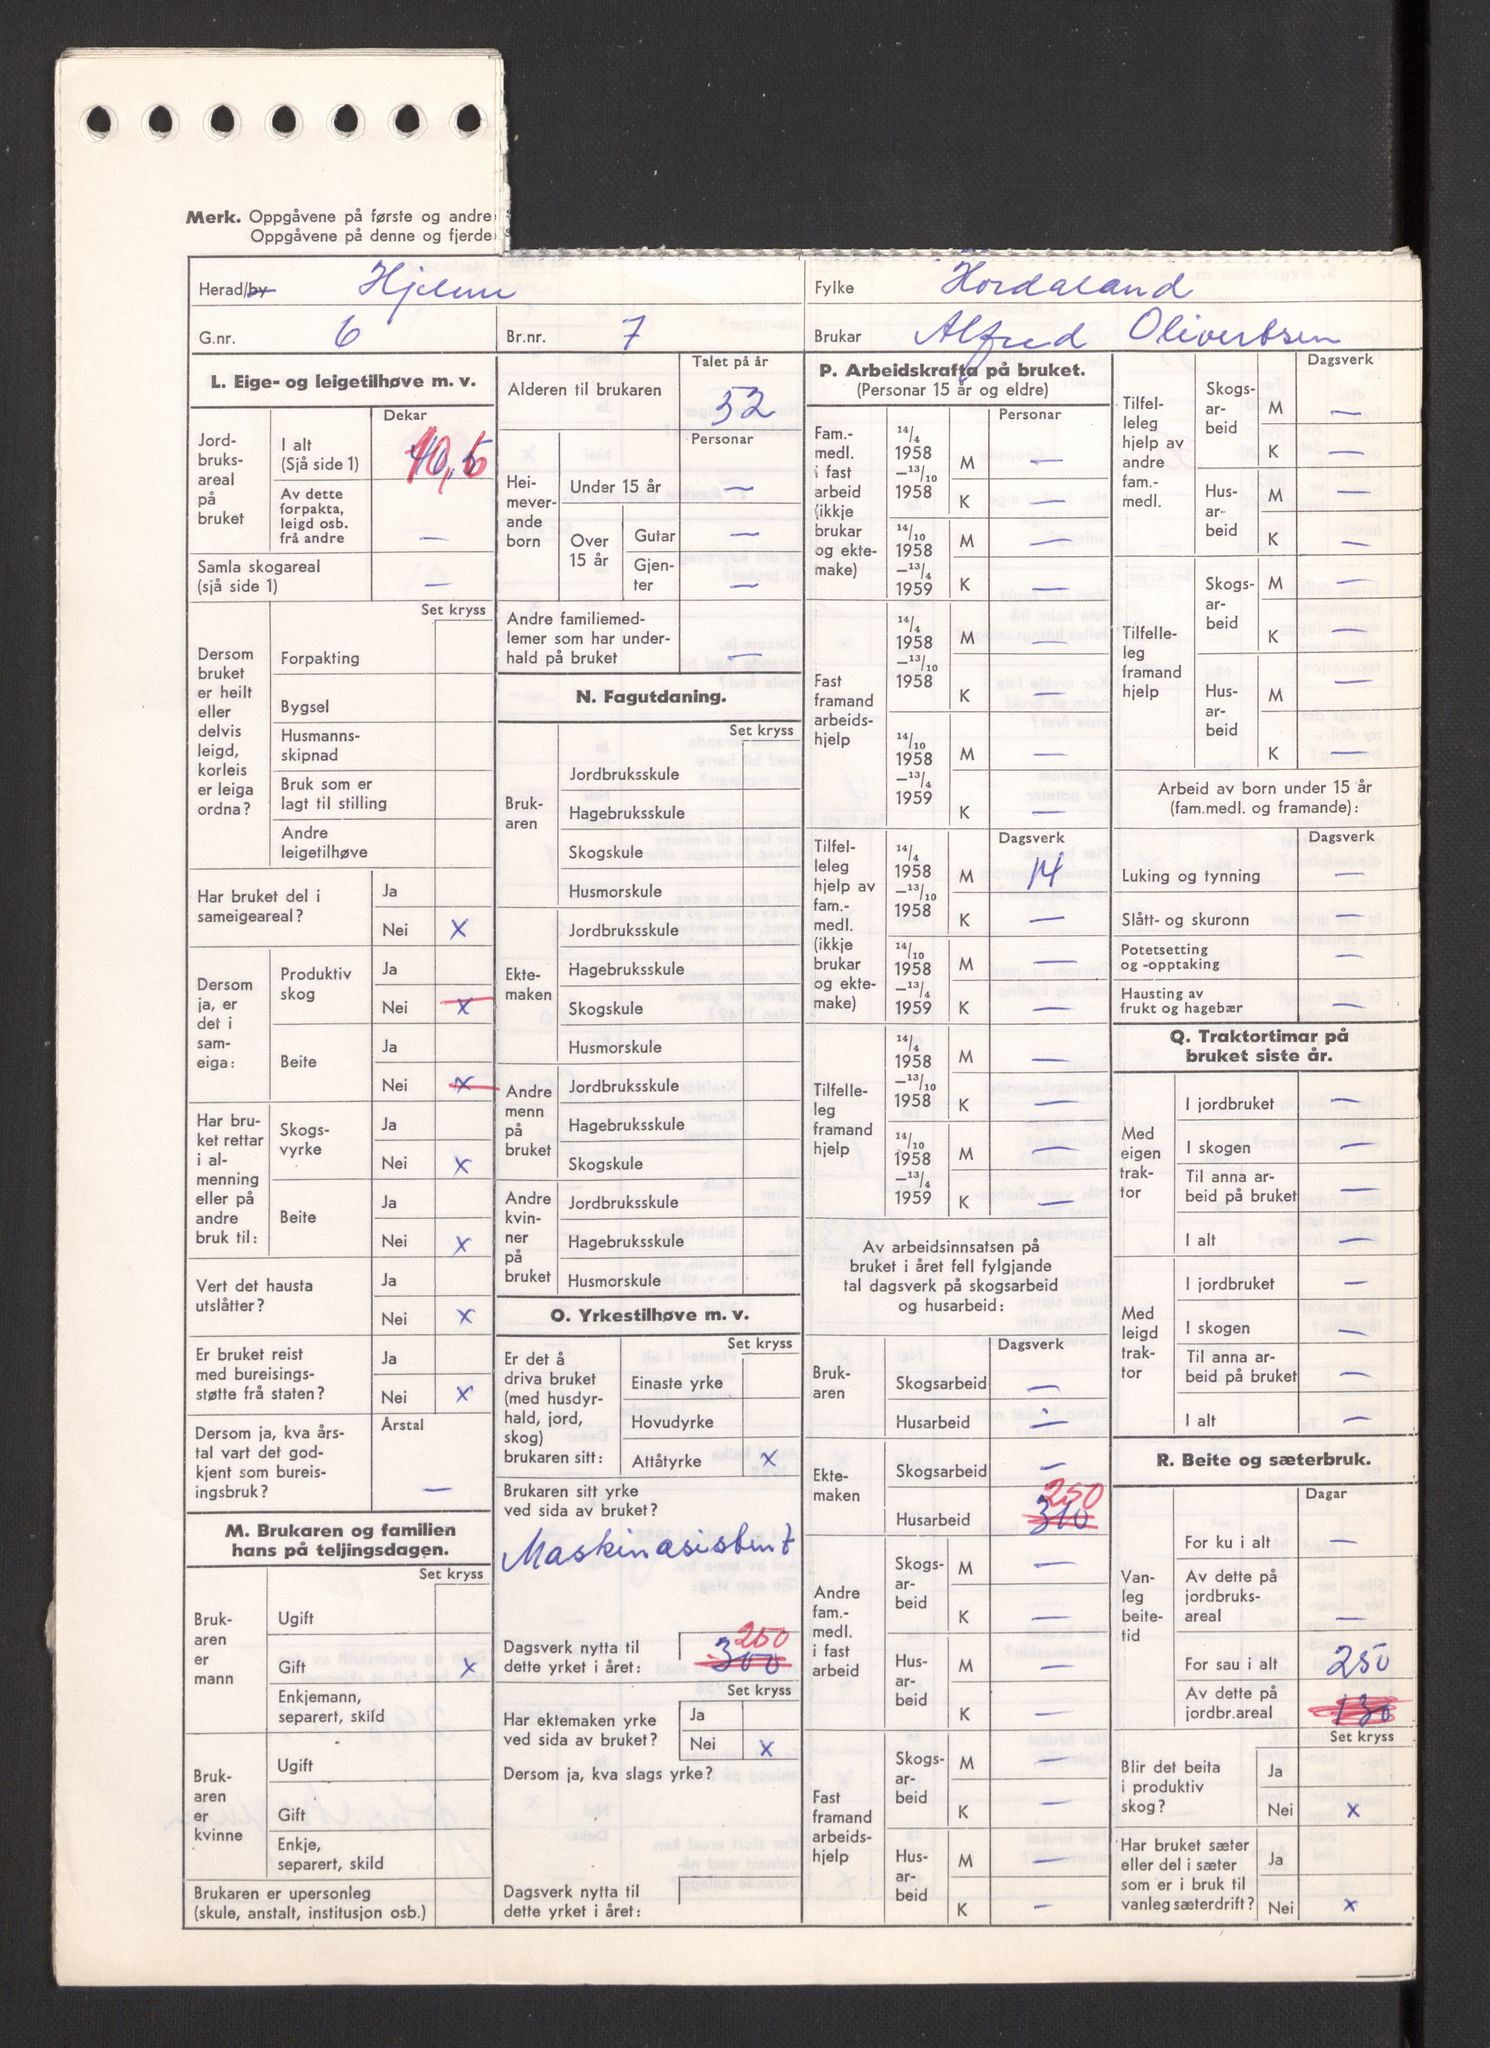 Merk. Oppgåvene på første og andre
Oppgåvene på denne og fjerde
Herad/by Hjelme
Fylke Hordaland
G.nr. 6
Br.nr. 7
Brukar Alfred Olivertsen
L. Eige- og leigetilhøve m. v.
Dekar
Jord-
bruks-
areal
på
bruket
I alt
(Sjå side 1)
Av dette
forpakta,
leigd osb.
frå andre —
Samla skogareal
(sjå side 1) —
Set kryss
Dersom
bruket
er heilt
eller
delvis
leigd,
korleis
er leiga
ordna?
Forpakting
Bygsel
Husmanns-
skipnad
Bruk som er
lagt til stilling
Andre
leigetilhøve
Har bruket del i
sameigeareal?
Ja
Nei x
Dersom
ja, er
det i
sam-
eiga:
Produktiv
skog
Ja
Nei x
Beite
Ja
Nei x
Har bru-
ket rettar
i al-
menning
eller på
andre
bruk til:
Skogs-
vyrke
Ja
Nei x
Beite
Ja
Nei x
Vert det hausta
utslåtter?
Ja
Nei x
Er bruket reist
med bureisings-
støtte frå staten?
Ja
Nei x
Dersom ja, kva års-
tal vart det god-
kjent som bureis-
ingsbruk?
Årstal
—
M. Brukaren og familien
hans på teljingsdagen.
Set kryss
Bruk-
aren
er
mann
Ugift
Gift x
Enkjemann,
separert, skild
Bruk-
aren
er
kvinne
Ugift
Gift
Enkje,
separert, skild
Brukaren er upersonleg
(skule, anstalt, institusjon osb.)
Talet på år
Alderen til brukaren 52
Personar
Hei-
mever-
ande
born
Under 15 år —
Over
15 år
Gutar —
Gjen-
ter —
Andre familiemed-
lemer som har under-
hald på bruket —
N. Fagutdaning.
Set kryss
Bruk-
aren
Jordbruksskule
Hagebruksskule
Skogskule
Husmorskule
Ekte-
maken
Jordbruksskule
Hagebruksskule
Skogskule
Husmorskule
Andre
menn
på
bruket
Jordbruksskule
Hagebruksskule
Skogskule
Andre
kvin-
ner
på
bruket
Jordbruksskule
Hagebruksskule
Husmorskule
O. Yrkestilhøve m. v.
Set kryss
Er det å
driva bruket
(med husdyr-
hald, jord,
skog)
brukaren sitt:
Einaste yrke
Hovudyrke
Attåtyrke x
Brukaren sitt yrke
ved sida av bruket?
Maskinasistent
Dagsverk nytta til
dette yrket i året:
250
300
Set kryss
Har ektemaken yrke
ved sida av bruket?
Ja
Nei x
Dersom ja, kva slags yrke?
Dagsverk nytta til
dette yrket i året:
P. Arbeidskrafta på bruket.
(Personar 15 år og eldre)
Personar
Fam.-
medl.
i fast
arbeid
(ikkje
brukar
og ekte-
make)
14/4
1958
—13/10
1958
M —
K —
14/10
1958
—13/4
1959
M —
K —
Fast
framand
arbeids-
hjelp
14/4
1958
—13/10
1958
M —
K —
14/10
1958
—13/4
1959
M —
K —
Dagsverk
Tilfel-
leleg
hjelp av
fam.-
medl.
(ikkje
brukar
og ekte-
make)
14/4
1958
—13/10
1958
M 14
K —
14/10
1958
—13/4
1959
M —
K —
Tilfelle-
leg
framand
hjelp
14/4
1958
—13/10
1958
M —
K —
14/10
1958
—13/4
1959
M —
K —
Av arbeidsinnsatsen på
bruket i året fell fylgjande
tal dagsverk på skogsarbeid
og husarbeid:
Dagsverk
Bruk-
aren
Skogsarbeid —
Husarbeid —
Ekte-
maken
Skogsarbeid —
250
Husarbeid 310
Andre
fam.-
medl.
i fast
arbeid
Skogs-
ar-
beid
M —
K —
Hus-
ar-
beid
M —
K —
Fast
framand
arbeids-
hjelp
Skogs-
ar-
beid
M —
K —
Hus-
ar-
beid
M —
K —
Dagsverk
Tilfel-
leleg
hjelp av
andre
fam.-
medl.
Skogs-
ar-
beid
M —
K —
Hus-
ar-
beid
M —
K —
Tilfelle-
leg
framand
hjelp
Skogs-
ar-
beid
M —
K —
Hus-
ar-
beid
M —
K —
Arbeid av born under 15 år
(fam.medl. og framande):
Dagsverk
Luking og tynning —
Slått- og skuronn —
Potetsetting
og -opptaking —
Hausting av
frukt og hagebær —
Q. Traktortimar på
bruket siste år.
Med
eigen
trak-
tor
I jordbruket —
I skogen —
Til anna ar-
beid på bruket —
I alt —
Med
leigd
trak-
tor
I jordbruket —
I skogen —
Til anna ar-
beid på bruket —
I alt —
R. Beite og sæterbruk.
Dagar
Van-
leg
beite-
tid
For ku i alt —
Av dette på
jordbruks-
areal —
For sau i alt 250
Av dette på
jordbr.areal 130
Set kryss
Blir det beita
i produktiv
skog?
Ja
Nei x
Har bruket sæter
eller del i sæter
som er i bruk til
vanleg sæterdrift?
Ja
Nei x